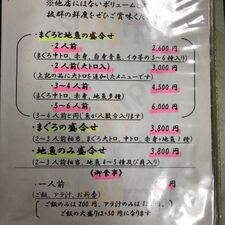 ※他店にはないボリューム
抜群の鮮度をぜひご賞味く
・まぐろと地魚の盛合せ
・2人前 2,600円
(まぐろ中トロ、赤身、白身青魚、イカ等の5~6種入り)
・2人前(大トロ入) 3,000円
(上記の為に大トロを追加したメニューです)
・3~4人前 4,500円
(まぐろ中トロ、赤身、地魚多種)
・5~6人前 6,000円
(3~4人前と同じ魚が人数分入ります)
・まぐろの盛合せ 3,800円
(2~3人前相当、まぐろ大トロ、中トロ、赤身・地魚1種)
・地魚のみ盛合せ 3,800円
(2~3人前相当、地魚4~5種及び貝入り)
(御食事)
・一人前 円
(ご飯、アラ汁、お新香)
(ご飯のみは200円、アラ汁のみは
ご飯の大盛りは+50円になります)